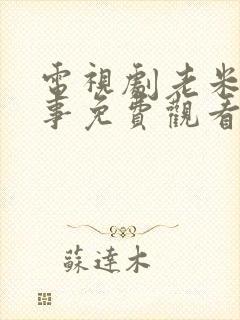 電視劇老米
事免費觀看
蘇達木